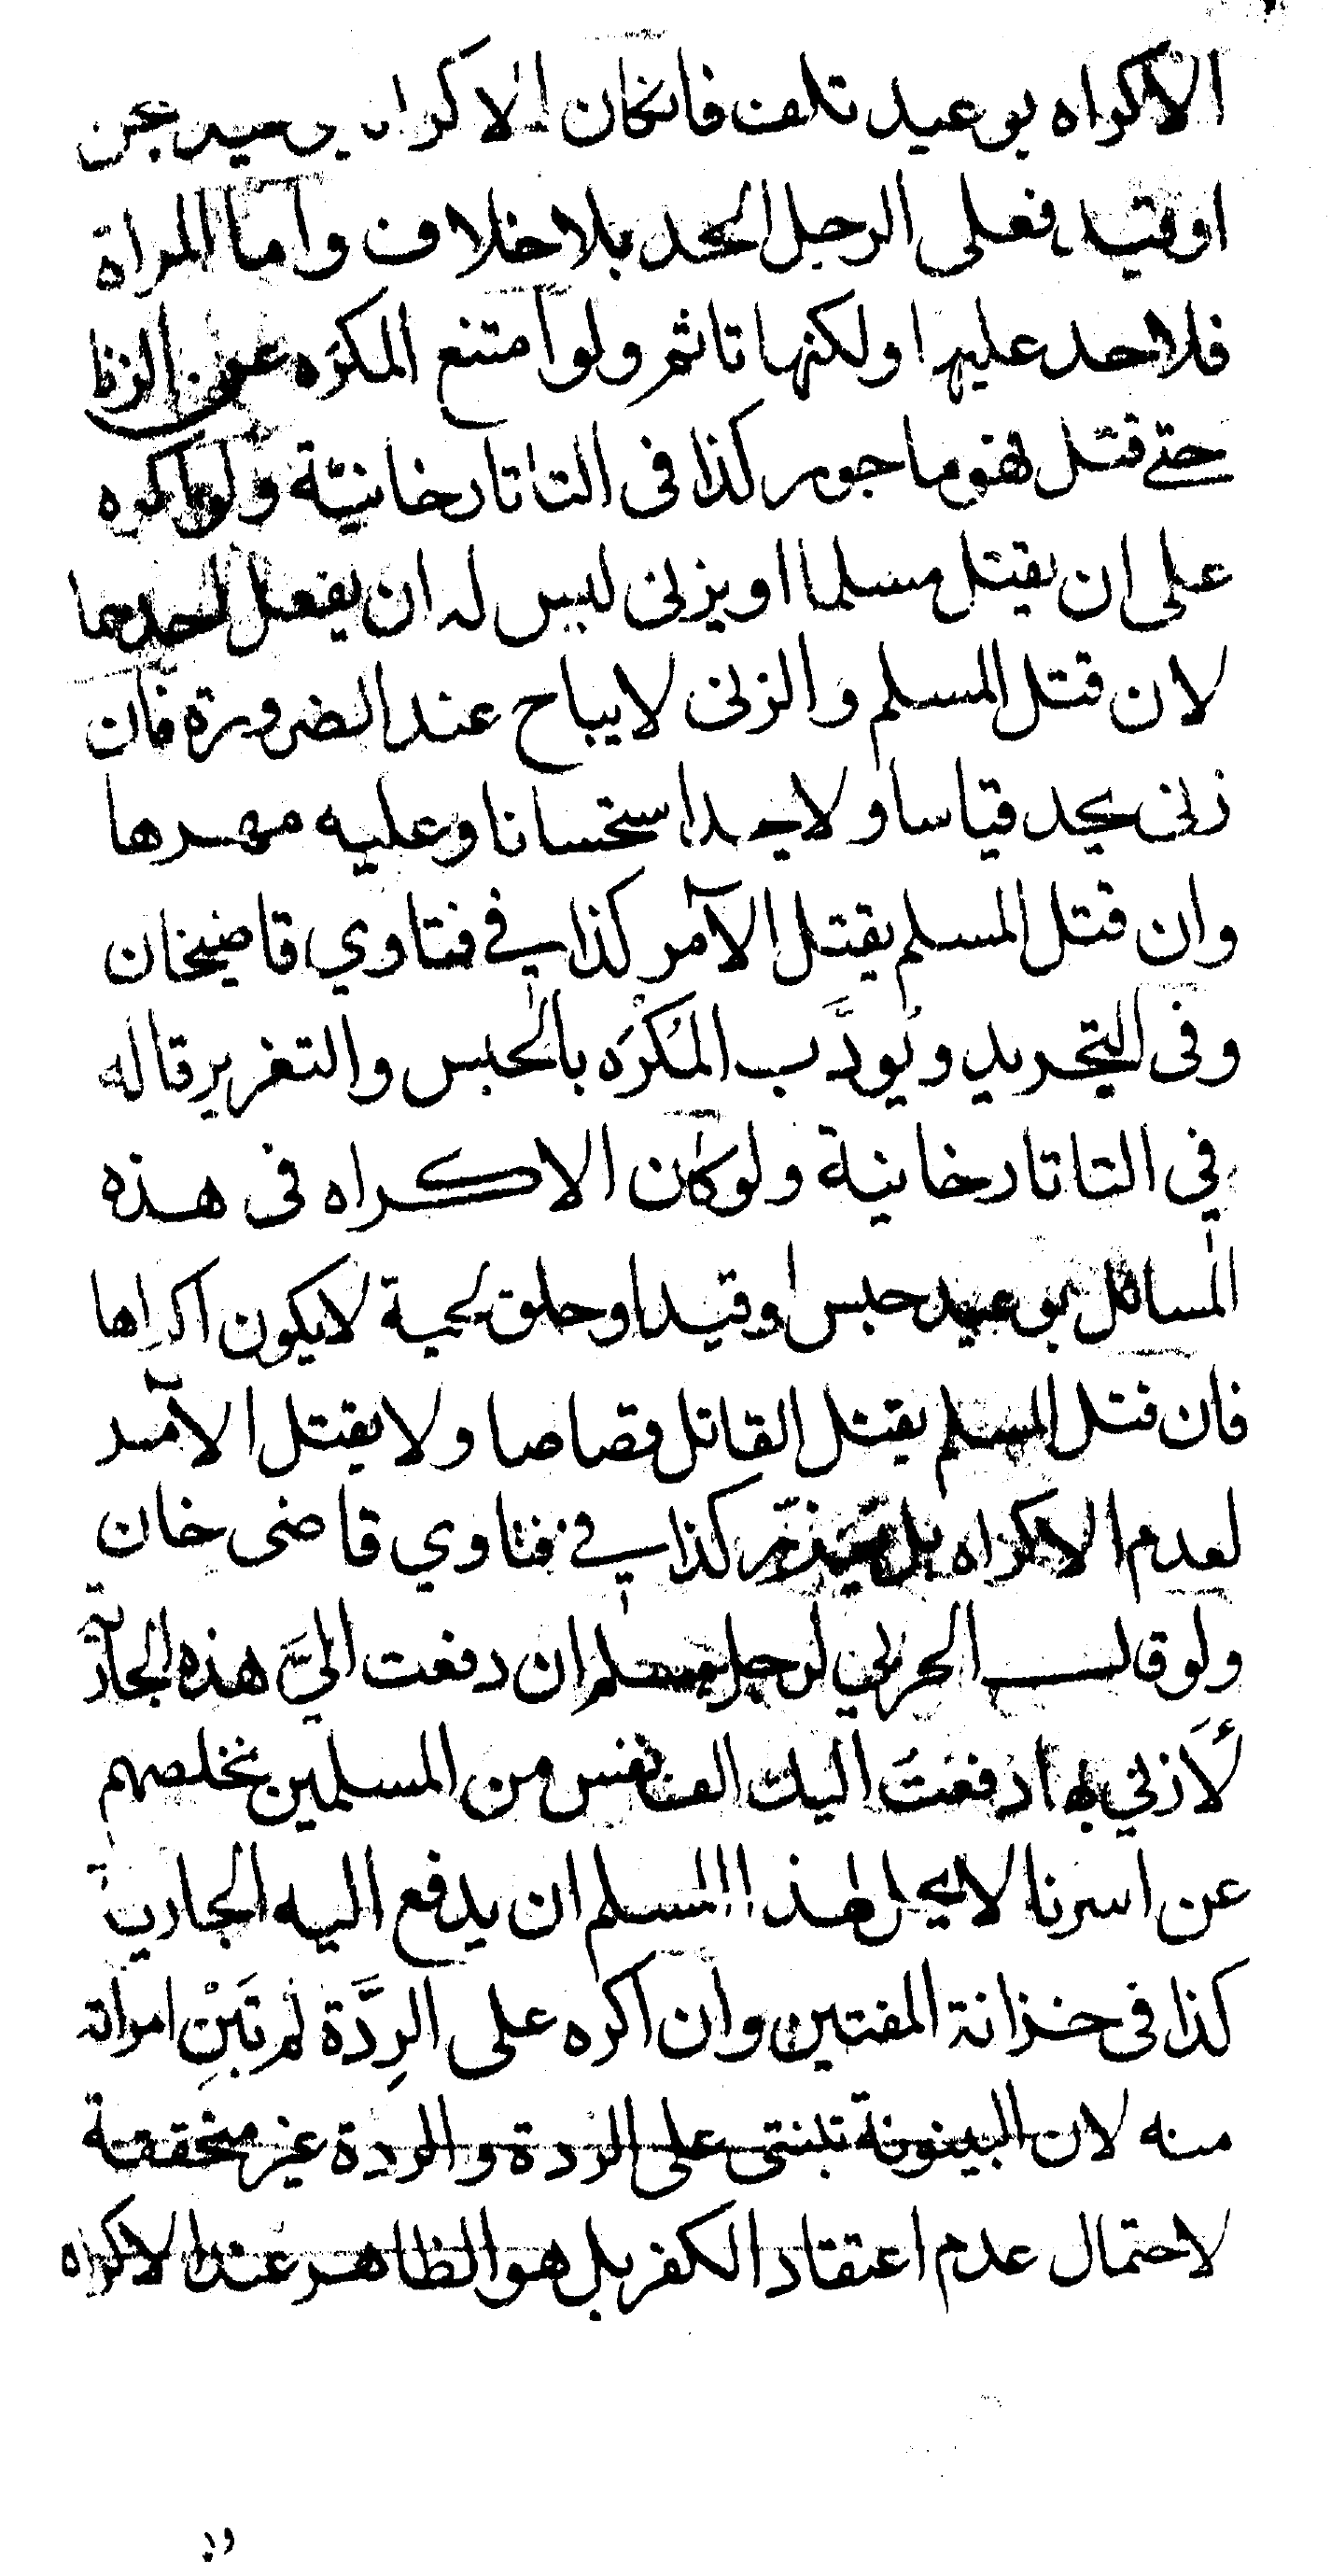 الاكراه بوعيد تلف فان كان الاكراه بوعيد سجن
او قيد فعلى الرجل الحد بلا خلاف واما المراة
فلا حد عليها ولكنها تاثم ولو امتنع المكرَه عن الزنا
حتى قتل فهو ماجور كذا فى التاتارخانيّة ولو اكره
على ان يقتل مسلما او يزنى ليس له ان يفعل احدهما
لان قتل المسلم والزنى لا يباح عند الضرورة فان
زنى يحد قياسا ولا يحد استحسانا وعليه مهرها
وان قتل المسلم يقتل الآمر كذا في فتاوي قاضيخان
وفى التجريد ويُودَّب المُكْرَه بالحبس والتعزير قاله
في التاتارخانية ولو كان الاكراه فى هذه
المسائل بوعيد حبس او قيد او حلق لحية لا يكون اكراها
فان قتل المسلم يقتل القاتل قصاصا ولا يقتل الآمر
لعدم الاكراه بل يعزر كذا في فتاوي قاضى خان
ولو قال الحربي لرجل مسلم ان دفعت اليَّ هذه الجارية
لَأزني بها دفعتُ اليك الف نفس من المسلمين نخلصهم
عن اسرنا لا يحل لهذا المسلم ان يدفع اليه الجارية
كذا فى خزانة المفتين وان اكره على الرِدَّة لم تَبِنْ امراته
منه لان البينونة تبتنى على الردة والردة غير متحققة
لاحتمال عدم اعتقاد الكفر بل هو الظاهر عند الاكراه